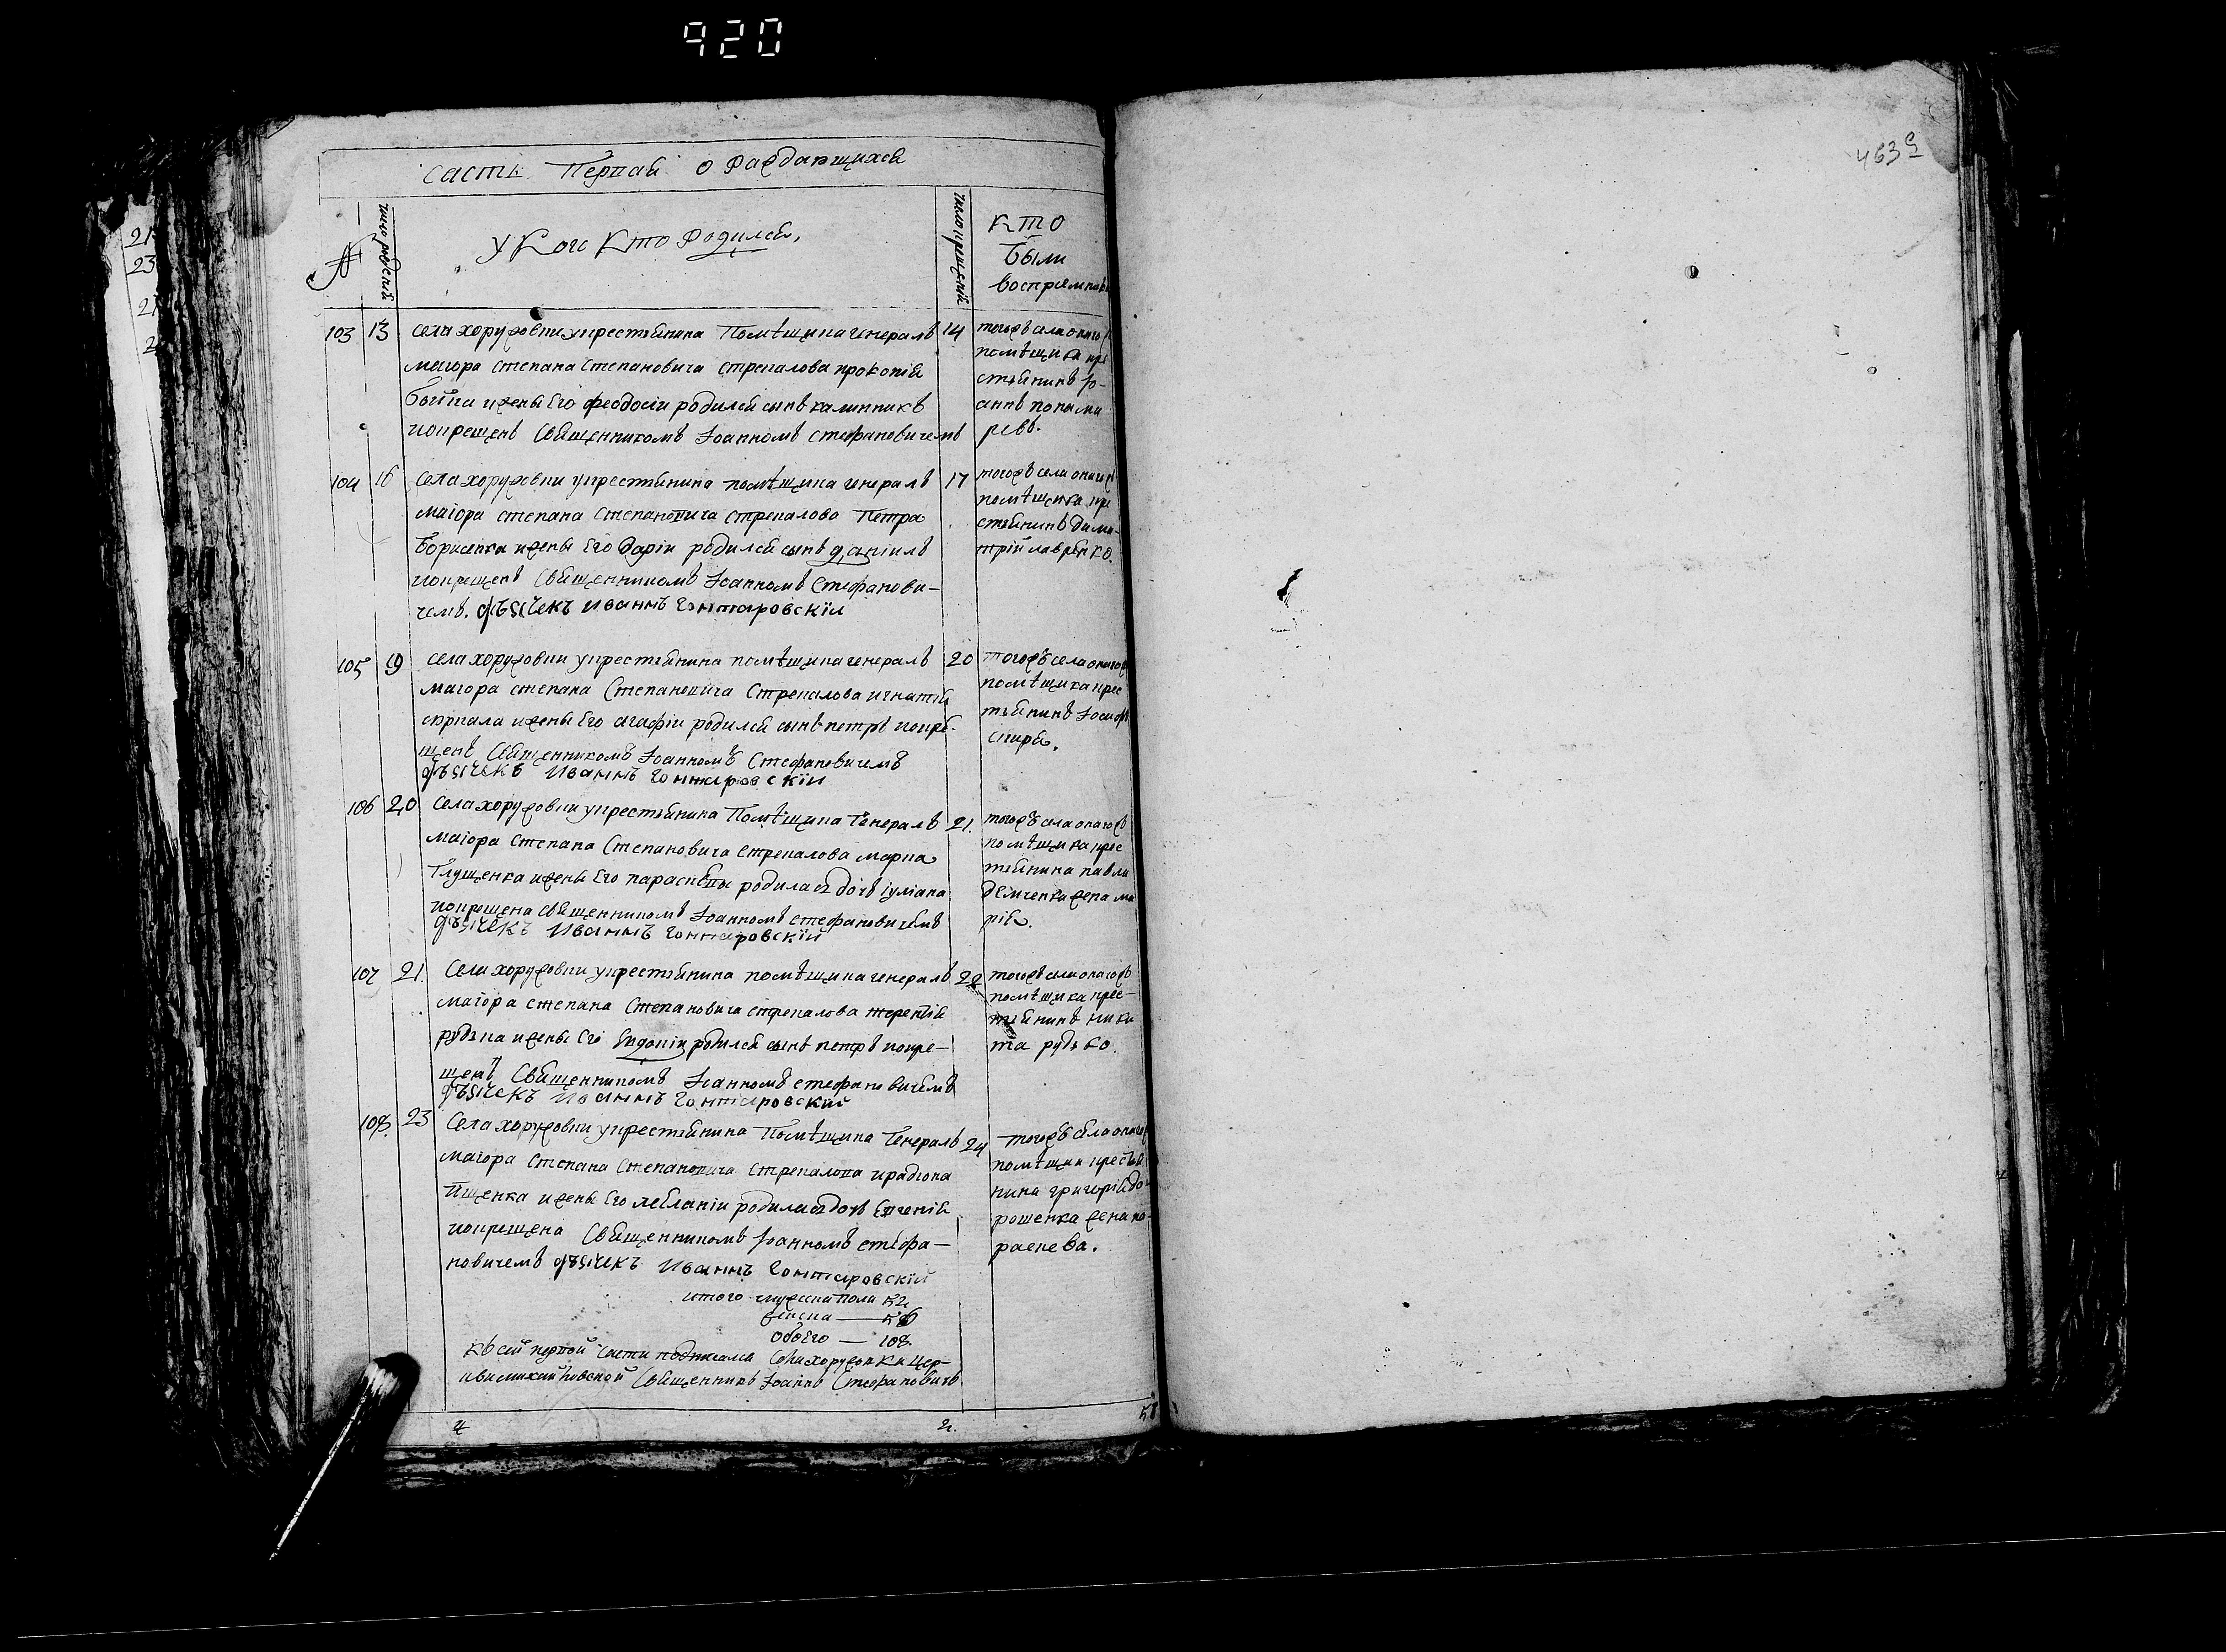 920
463
Часть Первай о Раждающихся
№
число рождений
У Кого Кто Родился,
число крещений
кто были восприемники
103 13 села хоружовки укрестянина Помѣщика генералъ 14
маiора степана степановича стрекалова прокопiя
жены Его феодосiи родился сынъ калинникъ
икрещенъ Священникомъ Iоанномъ стефановичемъ
тогожъ села онаго
помѣщика кре
стянинъ Iо-
аннъ
104 16 села хоружовки укрестянина помѣщика генералъ 17
маiора степана Степановича стрекалова Петра
Борисенка ижены Его Дарiи родился сынъ данiилъ
икрещенъ Священникомъ Iоанномъ Стефанови-
чемъ. дьячекъ Иваннъ Гонтаровскiй
тогожъ села онагожъ
помѣщика кре
стянинъ дими-
трiй лавренко.
105 19 села хоружовки укрестянина помѣщика генералъ 20
маiора степана Степановича Стрекалова игнатiя
ижены Его агафiи родился сынъ петръ икре-
щенъ Священникомъ Iоанномъ Стефановичемъ
дьячекъ Иваннъ Гонтаровскiй
тогожъ села онагожъ
помѣщика крес
тянинъ Iосифъ
106 20 села хоружовки укрестянина Помѣщика Генералъ 21.
маiора степана Степановича стрекалова марка
Глущенка ижены Его параскевы родилась дочъ iулiана
икрещена священникомъ Iоанномъ стефановичемъ
дьячекъ Иваннъ Гонтаровскiй
тогожъ села онагожъ
помѣщика крес
тянина павла
демченка жена ма
рiя.
107 21. Села хоружовки укрестянина помѣщика генералъ 22
маiора степана Степановича стрекалова терентiя
рудька ижены Его Евдокiи родился сынъ петръ икре-
щенъ Священникомъ Iоанномъ стефановичемъ
дьячекъ Иваннъ Гонтаровскiй
тогожъ села онагожъ
помѣщика крес-
тянинъ Ники
та рудько.
108. 23 Села хоружовки укрестянина Помѣщика Генералъ 24
маiора Степана Степановича Стрекалова
Ищенка ижены Его меланiи родилась дочъ Евгенiя
икрещена Священникомъ Iоанномъ стефа-
новичемъ дьячекъ Иваннъ Гонтаровскiй
тогожъ села онаго
помѣщик крестья
нина григорiя до-
рошенка жена па-
раскева.
итого мужеска пола 52
женска — 56
обоего — 108
къ сей первой части подписался Села хоружовки цер-
кви михайловской Священникъ Iоаннъ Стефановичъ